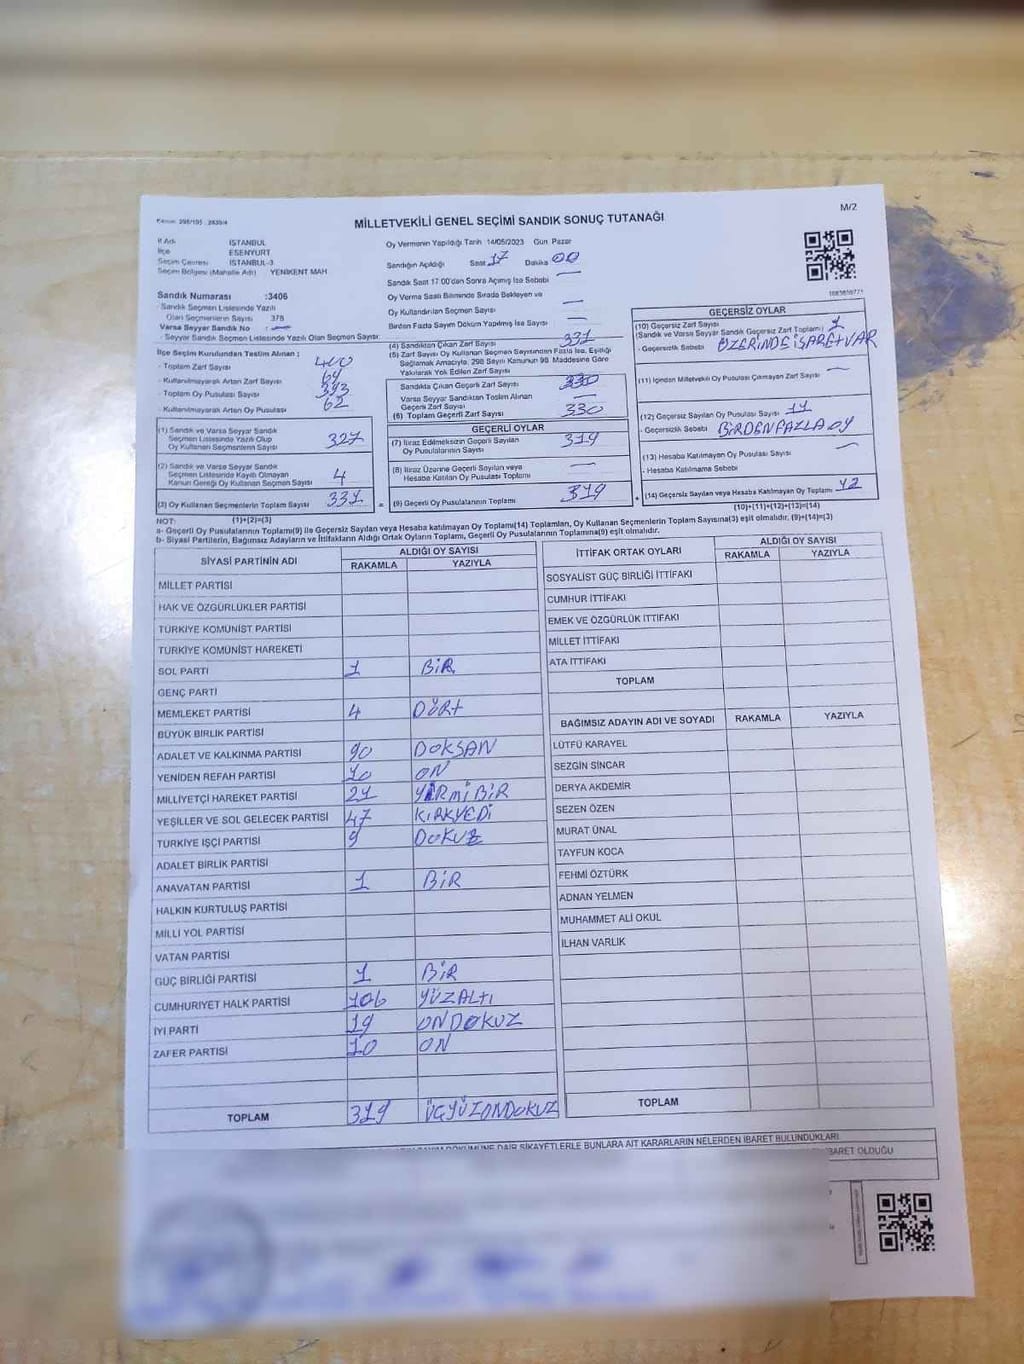 M/2
MİLLETVEKİLİ GENEL SEÇİMİ SANDIK SONUÇ TUTANAĞI
İl Adı İSTANBUL
İlçe ESENYURT
Seçim Çevresi İSTANBUL-3
Seçim Bölgesi (Mahalle Adı) YENİKENT MAH
Sandık Numarası :3406
Sandık Seçmen Listesinde Yazılı
Olan Seçmenlerin Sayısı 378
Varsa Seyyar Sandık No : —
Seyyar Sandık Seçmen Listesinde Yazılı Olan Seçmen Sayısı:
İlçe Seçim Kurulundan Teslim Alınan ;
- Toplam Zarf Sayısı 400
- Kullanılmayarak Artan Zarf Sayısı 69
- Toplam Oy Pusulası Sayısı 393
- Kullanılmayarak Artan Oy Pusulası 62
(1) Sandık ve Varsa Seyyar Sandık
Seçmen Listesinde Yazılı Olup
Oy Kullanan Seçmenlerin Sayısı 327
(2) Sandık ve Varsa Seyyar Sandık
Seçmen Listesinde Kayıtlı Olmayan
Kanun Gereği Oy Kullanan Seçmen Sayısı 4
(3) Oy Kullanan Seçmenlerin Toplam Sayısı 331
(1)+(2)=(3)
Oy Vermenin Yapıldığı Tarih 14/05/2023 Gün Pazar
Sandığın Açıldığı Saat 17 Dakika 00
Sandık Saat 17:00'den Sonra Açılmış İse Sebebi —
Oy Verme Saati Bitiminde Sırada Bekleyen ve
Oy Kullandırılan Seçmen Sayısı —
Birden Fazla Sayım Döküm Yapılmış İse Sayısı —
(4) Sandıktan Çıkan Zarf Sayısı 331
(5) Zarf Sayısı Oy Kullanan Seçmen Sayısından Fazla İse, Eşitliği
Sağlamak Amacıyla, 298 Sayılı Kanunun 98. Maddesine Göre
Yakılarak Yok Edilen Zarf Sayısı
Sandıkta Çıkan Geçerli Zarf Sayısı 330
Varsa Seyyar Sandıktan Teslim Alınan
Geçerli Zarf Sayısı —
(6) Toplam Geçerli Zarf Sayısı 330
GEÇERLİ OYLAR
(7) İtiraz Edilmeksizin Geçerli Sayılan
Oy Pusulalarının Sayısı 319
(8) İtiraz Üzerine Geçerli Sayılan veya
Hesaba Katılan Oy Pusulası Toplamı —
= (9) Geçerli Oy Pusulalarının Toplamı 319
GEÇERSİZ OYLAR
(10) Geçersiz Zarf Sayısı
(Sandık ve Varsa Seyyar Sandık Geçersiz Zarf Toplamı) 1
- Geçersizlik Sebebi ÜZERİNDE İŞARET VAR
(11) İçinden Milletvekili Oy Pusulası Çıkmayan Zarf Sayısı —
(12) Geçersiz Sayılan Oy Pusulası Sayısı 11
- Geçersizlik Sebebi BİRDEN FAZLA OY
(13) Hesaba Katılmayan Oy Pusulası Sayısı —
- Hesaba Katılmama Sebebi
+ (14) Geçersiz Sayılan veya Hesaba Katılmayan Oy Toplamı 12
(10)+(11)+(12)+(13)=(14)
NOT:
a- Geçerli Oy Pusulalarının Toplamı(9) ile Geçersiz Sayılan veya Hesaba katılmayan Oy Toplamı(14) Toplamları, Oy Kullanan Seçmenlerin Toplam Sayısına(3) eşit olmalıdır. (9)+(14)=(3)
b- Siyasi Partilerin, Bağımsız Adayların ve İttifakların Aldığı Ortak Oyların Toplamı, Geçerli Oy Pusulalarının Toplamına(9) eşit olmalıdır.
SİYASİ PARTİNİN ADI ALDIĞI OY SAYISI
RAKAMLA YAZIYLA
MİLLET PARTİSİ
HAK VE ÖZGÜRLÜKLER PARTİSİ
TÜRKİYE KOMÜNİST PARTİSİ
TÜRKİYE KOMÜNİST HAREKETİ
SOL PARTİ 1 BİR
GENÇ PARTİ
MEMLEKET PARTİSİ 4 DÖRT
BÜYÜK BİRLİK PARTİSİ
ADALET VE KALKINMA PARTİSİ 90 DOKSAN
YENİDEN REFAH PARTİSİ 10 ON
MİLLİYETÇİ HAREKET PARTİSİ 21 YİRMİBİR
YEŞİLLER VE SOL GELECEK PARTİSİ 47 KIRKYEDİ
TÜRKİYE İŞÇİ PARTİSİ 9 DOKUZ
ADALET BİRLİK PARTİSİ
ANAVATAN PARTİSİ 1 BİR
HALKIN KURTULUŞ PARTİSİ
MİLLİ YOL PARTİSİ
VATAN PARTİSİ
GÜÇ BİRLİĞİ PARTİSİ 1 BİR
CUMHURİYET HALK PARTİSİ 106 YÜZALTI
İYİ PARTİ 19 ONDOKUZ
ZAFER PARTİSİ 10 ON
TOPLAM 319 ÜÇYÜZONDOKUZ
İTTİFAK ORTAK OYLARI ALDIĞI OY SAYISI
RAKAMLA YAZIYLA
SOSYALİST GÜÇ BİRLİĞİ İTTİFAKI
CUMHUR İTTİFAKI
EMEK VE ÖZGÜRLÜK İTTİFAKI
MİLLET İTTİFAKI
ATA İTTİFAKI
TOPLAM
BAĞIMSIZ ADAYIN ADI VE SOYADI RAKAMLA YAZIYLA
LÜTFÜ KARAYEL
SEZGİN SİNCAR
DERYA AKDEMİR
SEZEN ÖZEN
MURAT ÜNAL
TAYFUN KOCA
FEHMİ ÖZTÜRK
ADNAN YELMEN
MUHAMMET ALİ OKUL
İLHAN VARLIK
TOPLAM
DÖKÜMÜNE DAİR ŞİKAYETLERLE BUNLARA AİT KARARLARIN NELERDEN İBARET BULUNDUKLARI
İBARET OLDUĞU